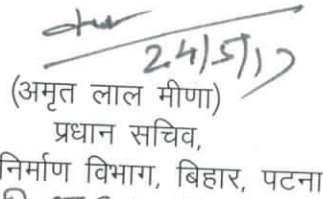 24/5/17
(अमृत लाल मीणा)
प्रधान सचिव,
निर्माण विभाग, बिहार, पटना